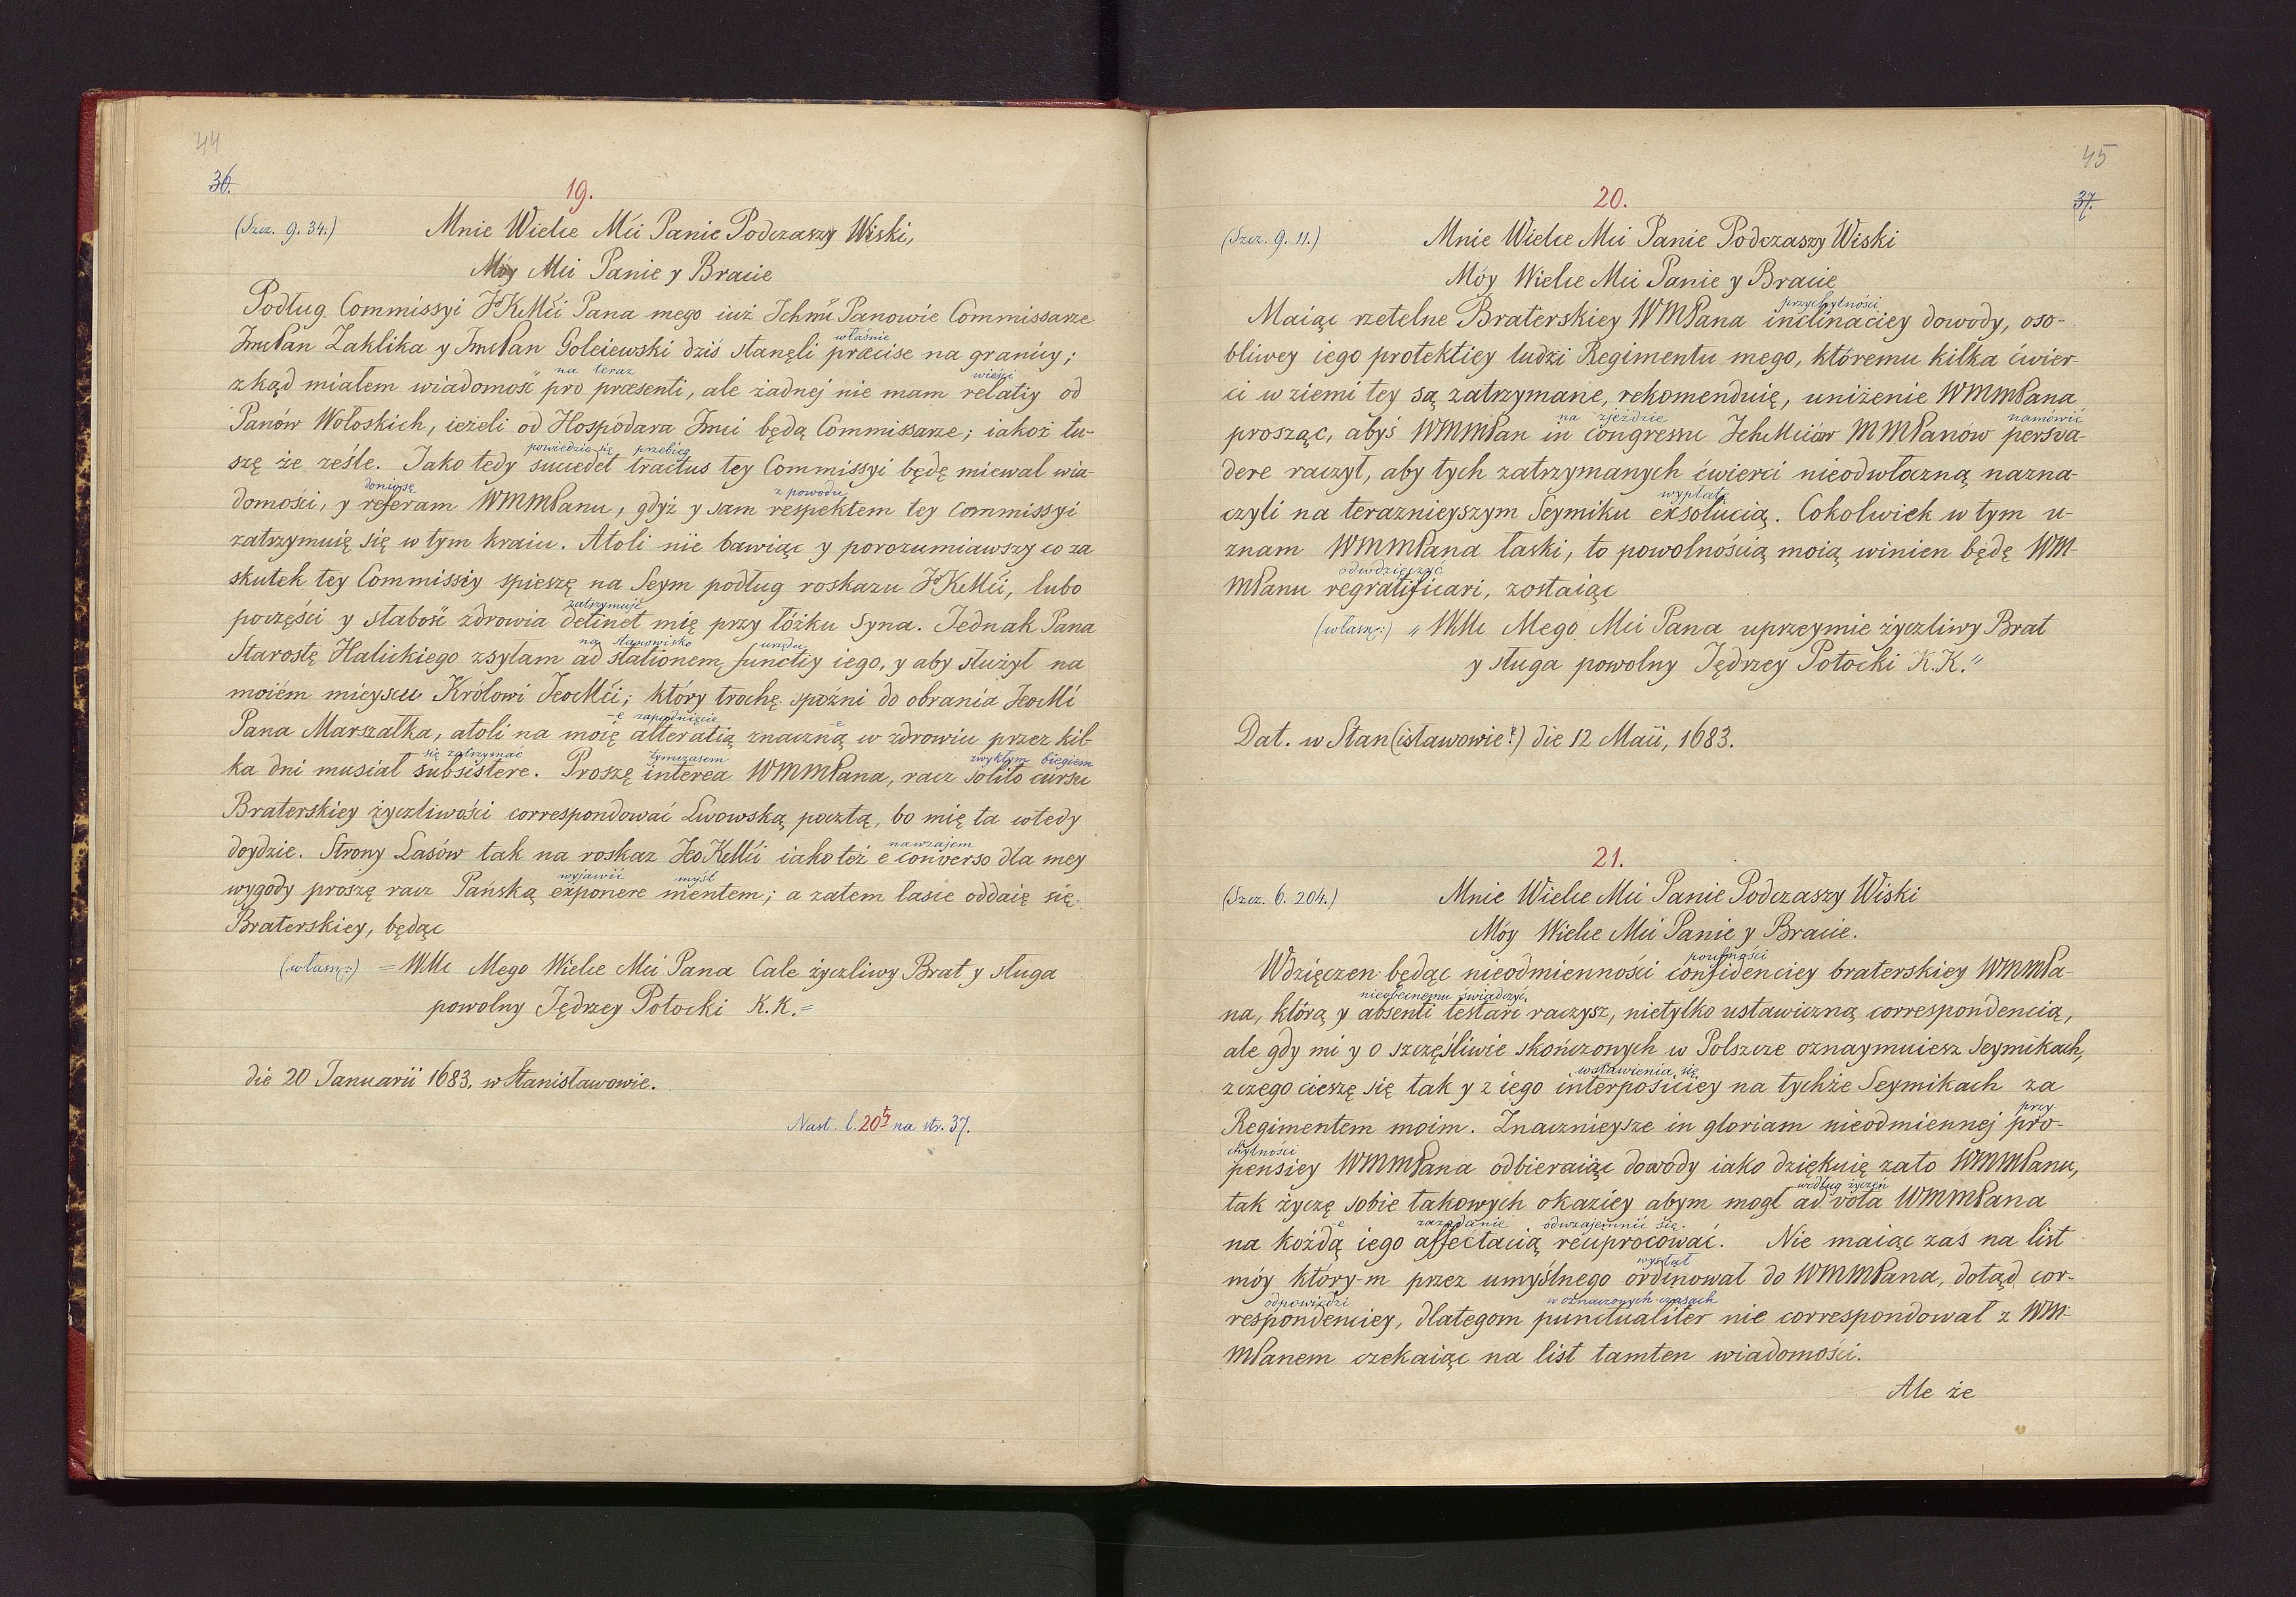 44
36.
19.
(Szcz. 9. 34.)
Mnie Wielce Mći Panie Podczaszy Wiski,
Móy Mći Panie y Bracie
Podług Commissyi JoKMći Pana mego iuż Ichmć Panowie Commissarze
właśnie
ImcPan Zaklika y ImcPan Golciewski dziś stanęli præcise na granicy;
na teraz wieści
zkąd miałem wiadomość pro præsenti, ale żadnej nie mam relatiy od
Panów Wołoskich, ieżeli od Hospodara Imci będą Commissarze; iakoż tu-
powiedzie się przebieg
szę że ześle. Jako tedy succedet tractus tey Commissyi będę miewał wia-
doniosę z powodu
domości, y referam WMMPanu, gdyż y sam respektem tey Commissyi
zatrzymuię się w tym kraiu. Atoli nie bawiąc y porozumiawszy co za
skutek tey Commissiy spieszę na Seym podług roskazu JoKMći, lubo
zatrzymuje
poczęści y słabość zdrowia detinet mię przy łóżku syna. Jednak Pana
na stanowisko urzędu
Starostę Halickiego zsyłam ad stationem functiy iego, y aby służył na
moiém mieyscu Królowi JeoMći; który trochę spoźni do obrania JeoMć
-ę zapadnięcie -ę
Pana Marszałka, atoli na moię alteratią znaczną w zdrowiu przez kil-
się zatrzymać tymczasem zwykłym biegiem
ka dni musiał subsistere. Proszę interea WMMPana, racz solito cursu
Braterskiey życzliwości correspondować Lwowską pocztą, bo mię ta wtedy
nawzajem
doydzie. Strony Lasów tak na roskaz JeoKMći iako też e converso dla mey
wyjawić myśl
wygody proszę racz Pańską exponere mentem; a zatem łasce oddaię się
Braterskiey, będąc
(własn:) = WMc Mego Wielce Mći Pana Cale życzliwy Brat y sługa
powolny Jędrzey Potocki K.K.=
die 20 Januarii 1683. w Stanisławowie.
Nast. l. 20ty na str. 37.
45
37.
20.
(Szcz. 9. 11.)
Mnie Wielce Mći Panie Podczaszy Wiski
Móy Wielce Mći Panie y Bracie
przychylności
Maiąc rzetelne Braterskiey WMPana inclinaciey dowody, oso-
bliwey iego protektiey ludzi Regimentu mego, któremu kilka ćwier-
ci w ziemi tey są zatrzymane, rekomenduię, uniżenie WMMPana
na zjeździe namówić
prosząc, abyś WMMPan in congressu IchMciów MMPanów persva-
dere raczył, aby tych zatrzymanych ćwierci nieodwłoczną nazna-
wypłatę
czyli na teraznieyszym Seymiku exsolucią. Cokolwiek w tym u-
znam WMMPana łaski, to powolnością moią winien będę WM-
odwdzięczyć
MPanu regratificari, zostaiąc
(własn:) "WMc Mego Mći Pana uprzeymie życzliwy Brat
y sługa powolny Jędrzey Potocki K.K."
Dat. w Stan(isławowie?) die 12 Maii, 1683.
21.
(Szcz. 6. 204.)
Mnie Wielce Mći Panie Podczaszy Wiski
Móy Wielce Mći Panie y Bracie.
poufności
Wdzięczen będąc nieodmienności confidenciey braterskiey WMMPa-
nieobecnemu świadczyć
na, którą y absenti testari raczysz, nietylko ustawiczną correspondencią,
ale gdy mi y o szczęśliwie skończonych w Polszcze oznaymuiesz Seymikach,
wstawienia się
zczego cieszę się tak y z iego interposiciey na tychże Seymikach za
przy-
Regimentem moim. Znacznieysze in gloriam nieodmiennej pro-
chylności
pensiey WMMPana odbieraiąc dowody iako dziękuię zato WMMPanu,
według życzeń
tak życzę sobie takowych okaziey abym mogł ad vota WMMPana
-e zażądanie odwzajemnić się.
na każdą iego affectacią reciprocować. Nie maiąc zaś na list
wysłał
móy który-m przez umyślnego ordinował do WMMPana, dotąd cor-
odpowiedzi w oznaczonych czasach
respondenciey, dlategom punctualiter nie correspondował z WM-
MPanem czekaiąc na list tamten wiadomości.
Ale że